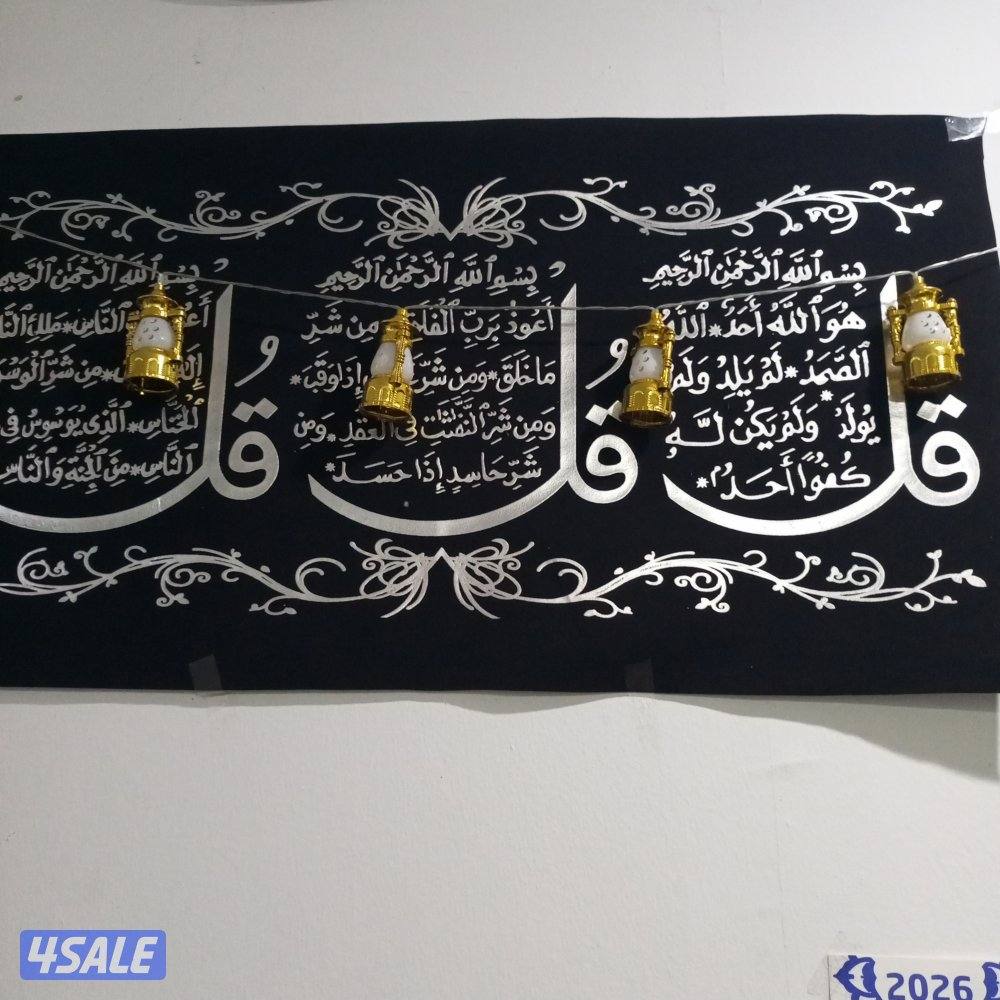 بِسْمِ ٱللَّهِ ٱلرَّحْمَٰنِ ٱلرَّحِيمِ
قُلْ
هُوَ ٱللَّهُ أَحَدٌ * ٱللَّهُ
ٱلصَّمَدُ * لَمْ يَلِدْ وَلَمْ
يُولَدْ وَلَمْ يَكُن لَّهُ
كُفُوًا أَحَدٌ *
بِسْمِ ٱللَّهِ ٱلرَّحْمَٰنِ ٱلرَّحِيمِ
قُلْ
أَعُوذُ بِرَبِّ ٱلْفَلَقِ مِن شَرِّ
مَا خَلَقَ * وَمِن شَرِّ إِذَا وَقَبَ *
وَمِن شَرِّ ٱلنَّفَّٰثَٰتِ فِى ٱلْعُقَدِ * وَمِن
شَرِّ حَاسِدٍ إِذَا حَسَدَ *
بِسْمِ ٱللَّهِ ٱلرَّحْمَٰنِ ٱلرَّحِيمِ
قُلْ
ٱلنَّاسِ * مَلِكِ
مِن شَرِّ
ٱلْخَنَّاسِ * ٱلَّذِى يُوَسْوِسُ فِى
ٱلنَّاسِ * مِنَ ٱلْجِنَّةِ وَٱلنَّاسِ
4SALE
2026